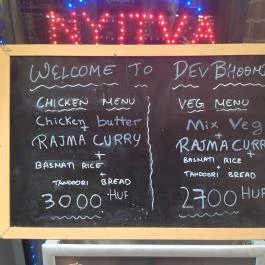 NYITVA
WELCOME TO DEV BHOOMI
CHICKEN MENU
Chicken butter
+
RAJMA CURRY
+
BASMATI RICE
+
TANDOORI BREAD
3000 HUF
VEG MENU
Mix Veg
+
RAJMA CURR
+
BASMATI RICE
+
TANDOORI BREAD
2700 HUF